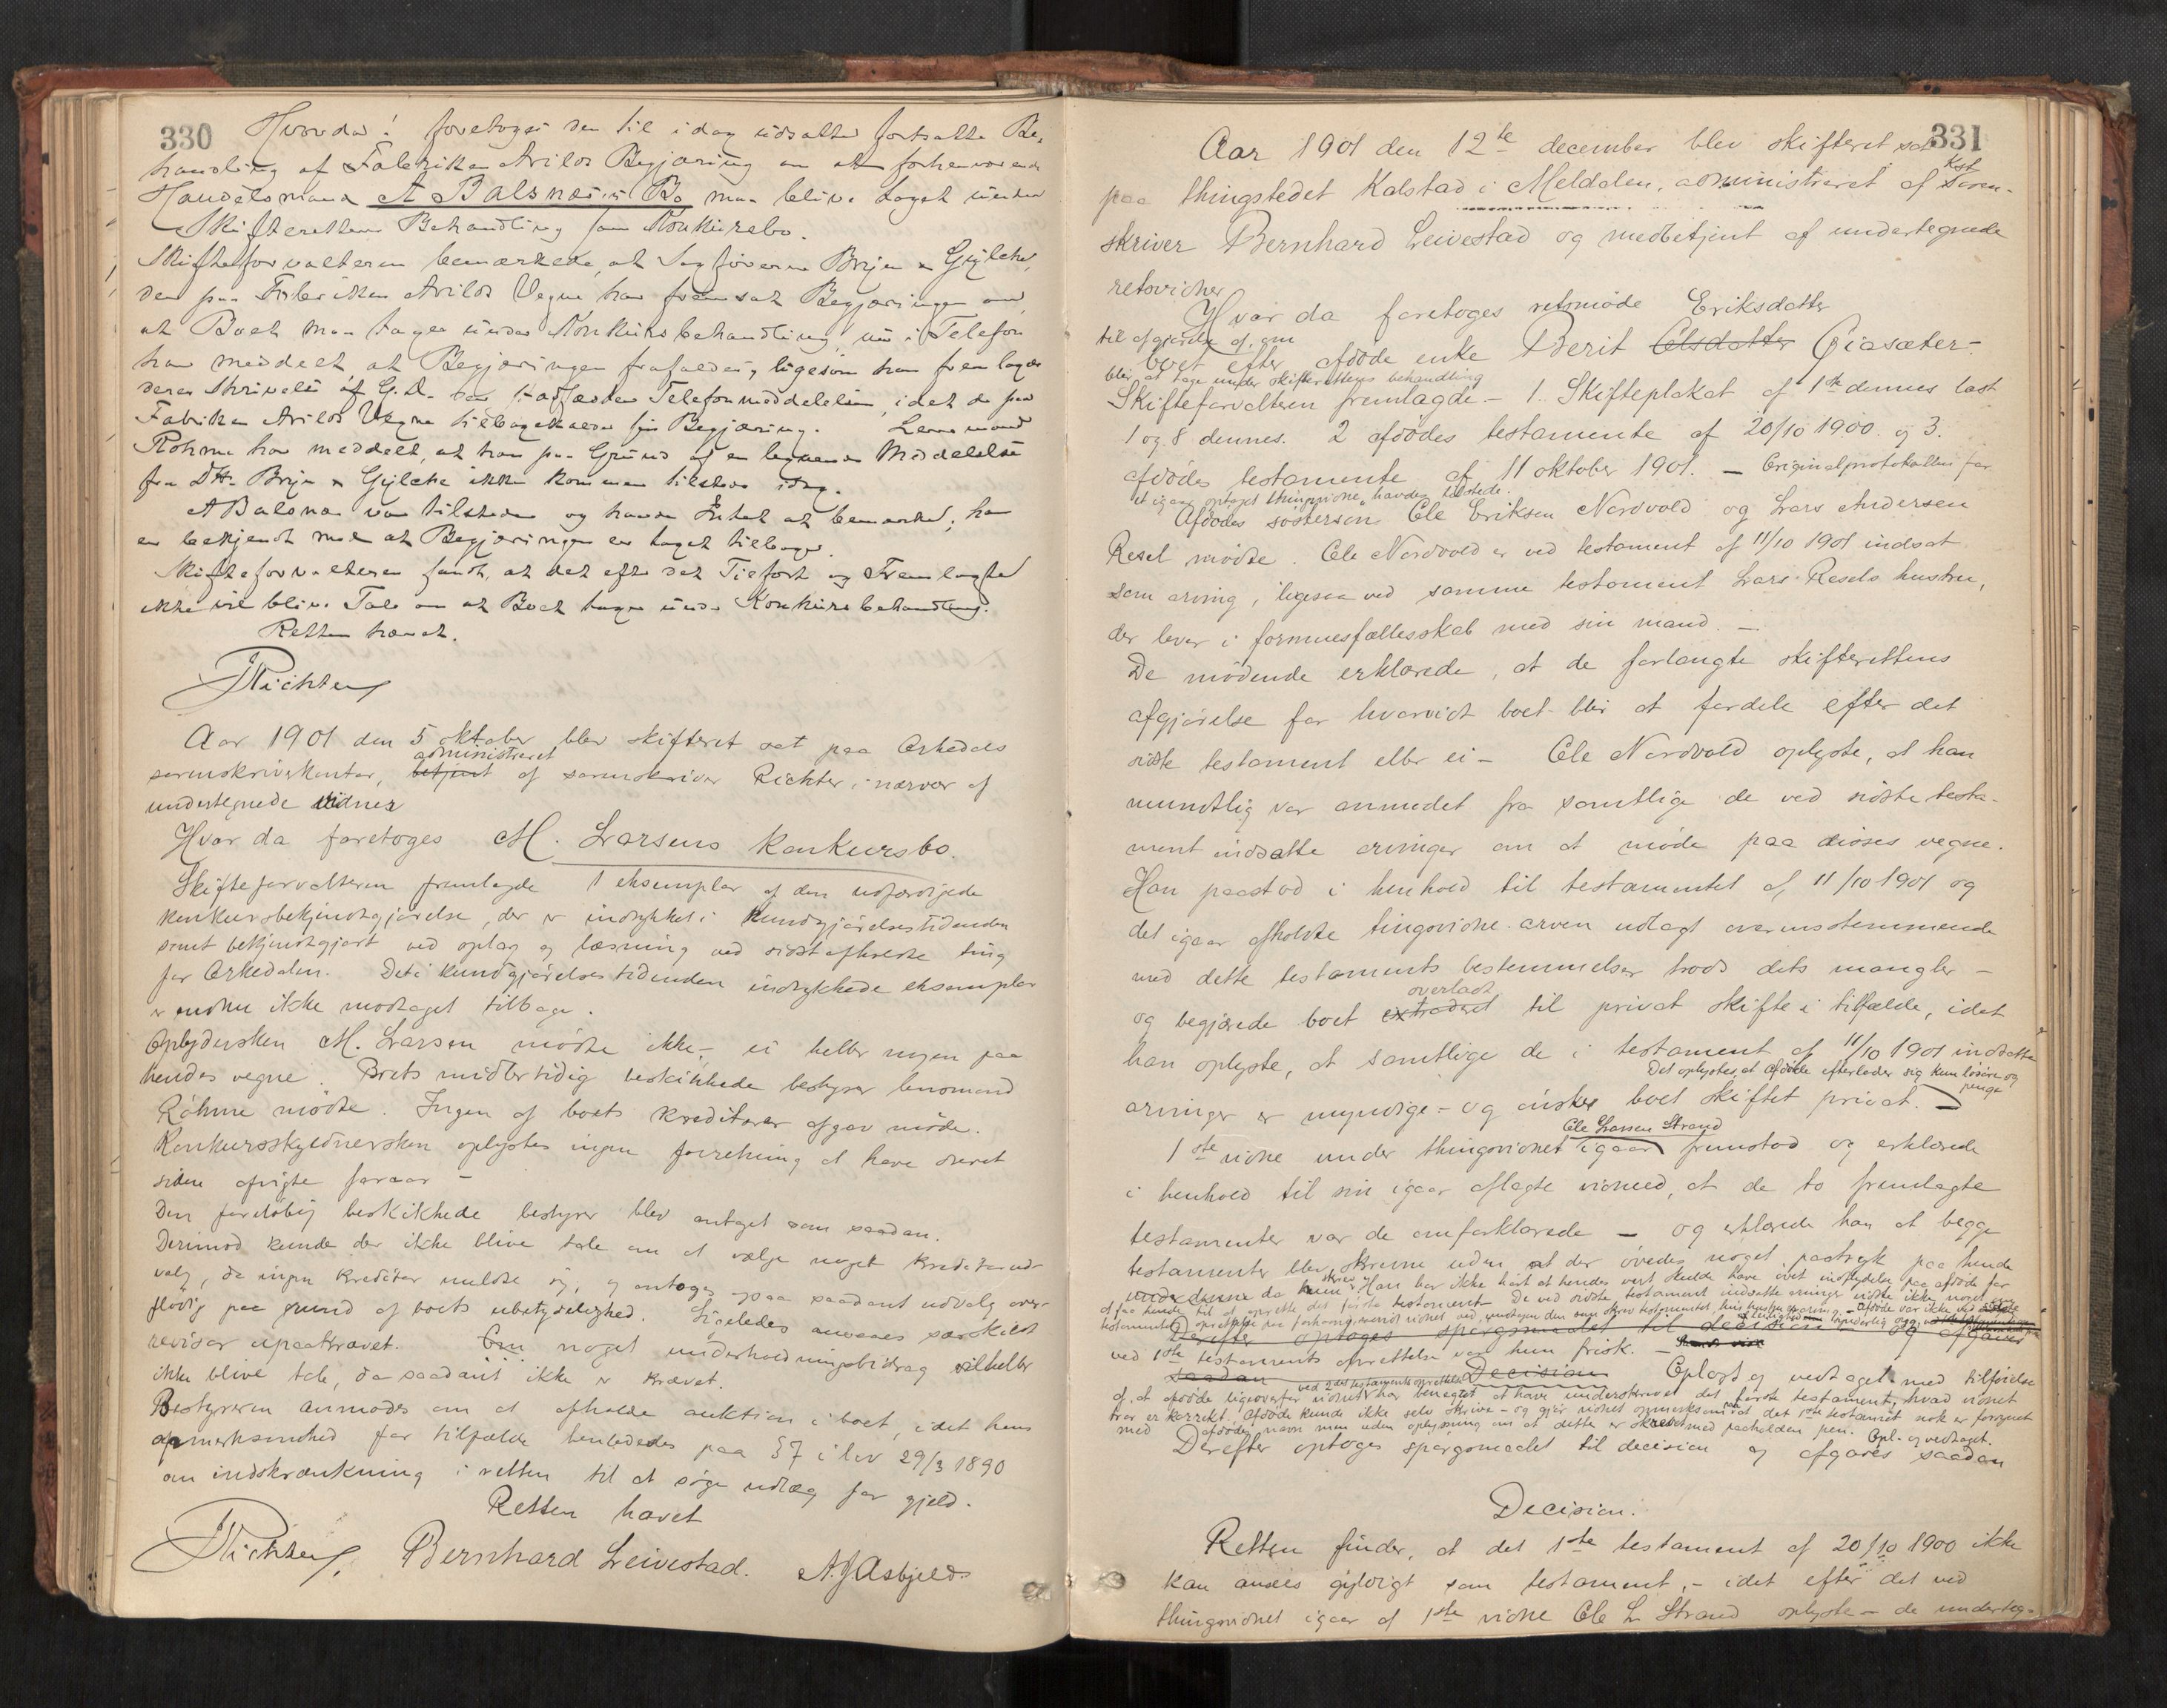 330
Hvorda! foretoges den til idag udsatte fortsatte Be-
handling af Fabrikken Arilds Begjæring om at forhenværende
Handelsmand A Balsnæs's Bo maa blive taget under
Skifterettens Behandling som Konkursbo.
Skifteforvalteren bemærkede, at Sagførerne Bryn & Gylche,
der paa Fabrikken Arilds Vegne har fremsat Begjæringen om,
at Boet maa tages under Konkursbehandling, nu i Telefon
har meddelt, at Begjæringen frafaldes, ligesom han fremlagde
deres Skrivelse af G.D. om Telefonmeddelelsen, idet de paa
Fabrikken Arilds Vegne tilbagekalder sin Begjæring. Lensmand
Röhme har meddelt, at han paa Grund af en lignende Meddelelse
fra Dhr. Bryn & Gylche ikke kommer tilstede idag.
A Balsnæs var tilstede og havde Intet at bemærke; han
er bekjendt med at Begjæringen er taget tilbage.
Skifteforvalteren fandt, at det efter det Tilførte og Fremlagte
ikke vil blive Tale om at Boet tages under Konkursbehandling.
Retten hævet.
Richter
Aar 1901 den 5 oktober blev skifteret sat paa Orkedals
administreret
sorenskriverkontor, betjent af sorenskriver Richter i nærvær af
undertegnede vidner
Hvor da foretoges M. Larsens Konkursbo.
Skifteforvalteren fremlagde 1 eksemplar af den udfærdigede
konkursbekjendtgjørelse, der er indrykket i Kundgjørelsestidenden
samt bekjendtgjort ved opslag og læsning ved sidst afholdte ting
for Orkedalen. Det i Kundgjørelsestidenden indrykkede eksemplar
er endnu ikke modtaget tilbage.
Opbydersken M. Larsen mødte ikke, ei heller nogen paa
hendes vegne. Boets midlertidig beskikkede bestyrer lensmand
Röhme mødte. Ingen af boets kreditorer afgav møde.
Konkursskyldnersken oplystes ingen forretning at have drevet
siden afvigte foraar –
Den foreløbig beskikkede bestyrer blev antaget som saadan.
Derimod kunde der ikke blive tale om at vælge noget kreditorud-
valg, da ingen kreditor meldte sig, og antoges ogsaa saadant udvalg over-
flødig paa grund af boets ubetydelighed. Ligeledes ansees særskilt
revisor upaakrævet. Om noget underholdningsbidrag vil heller
ikke blive tale, da saadant ikke er krævet.
Bestyreren anmodes om at afholde auktion i boet, idet hans
opmerksomhed for tilfælde henlededes paa § 7 i lov 29/3 1890
om indskrænkning i retten til at søge udlæg for gjeld.
Retten hævet
Richter. Bernhard Leivestad. A. J. Asbjeld.
331
Aar 1901 den 12te december blev skifteret sat
Kst
paa thingstedet Kalstad i Meldalen, administreret af Soren-
skriver Bernhard Leivestad og medbetjent af undertegnede
retsvidner
Hvor da foretoges retsmøde Eriksdatter
til afgjørelse af, om
boet efter afdøde enke Berit Olsdatter Giasæter
blir at tage under skifterettens behandling
Skifteforvalteren fremlagde – 1. Skifteplakat af 1ste dennes læst
1 og 8 dennes. 2 afdødes testamente af 20/10 1900 og 3.
afdødes testamente af 11 oktober 1901. – Originalprotokollen for
et igaar optaget thingsvidne havdes tilstede.
Afdødes søstersøn Ole Eriksen Nordvold og Lars Andersen
Resel mødte. Ole Nordvold er ved testament af 11/10 1901 indsat
som arving, ligesaa ved samme testament Lars Resels hustru,
der lever i formuesfællesskab med sin mand. –
De mødende erklærede, at de forlangte skifterettens
afgjørelse for hvorvidt boet blir at fordele efter det
sidste testament eller ei – Ole Nordvold oplyste, at han
mundtlig var anmodet fra samtlige de ved sidste testa-
ment indsatte arvinger om at møde paa disses vegne.
Han paastod i henhold til testamentet af 11/10 1901 og
det igaar afholdte tingsvidne arven udlagt overensstemmende
med dette testaments bestemmelser trods dets mangler –
overladt
og begjærede boet extraderet til privat skifte i tilfælde, idet
han oplyste, at samtlige de i testament af 11/10 1901 indsatte
Det oplystes, at afdøde efterlader sig kun løsøre og
penge
arvinger er myndige – og ønskes boet skiftet privat. –
Ole Larsen Strand
1ste vidne under thingsvidnet igaar fremstod og erklærede
i henhold til sin igaar aflagte vidneed, at de to fremlagte
testamenter var de omforklarede – og erklærede han at begge
testamenter blev skrevne uden at der øvedes noget paatryk paa hende
Han har ikke hørt at hendes vert skulde have øvet indflydelse paa afdøde for
at faa hende til at oprette det første testament. De ved sidste testament indsatte arvinger vidste ikke noget om
Derefter optages spørgsmaalet til decision og afgaves
ved 1ste testaments oprettelse var hun frisk. –
saadan Decision Oplæst og vedtaget med tilføielse
ved 2det testaments oprettelse
af, at afdøde ligeoverfor vidnet har benægtet at have underskrevet det første testament, hvad vidnet
tror er korrekt. Afdøde kunde ikke selv skrive – og gjør vidnet opmerksom paa at det 1ste testament nok er forsynet
med afdødes navn men uden oplysning om at dette er skrevet med paaholden pen. Opl. og vedtaget.
Derefter optoges spørgsmaalet til decision og afgaves saadan
Decision.
Retten finder, at det 1ste testament af 20/10 1900 ikke
kan ansees gyldigt som testament, – idet efter det ved
thingsvidnet igaar af 1ste vidne Ole L Strand oplyste – de underteg-